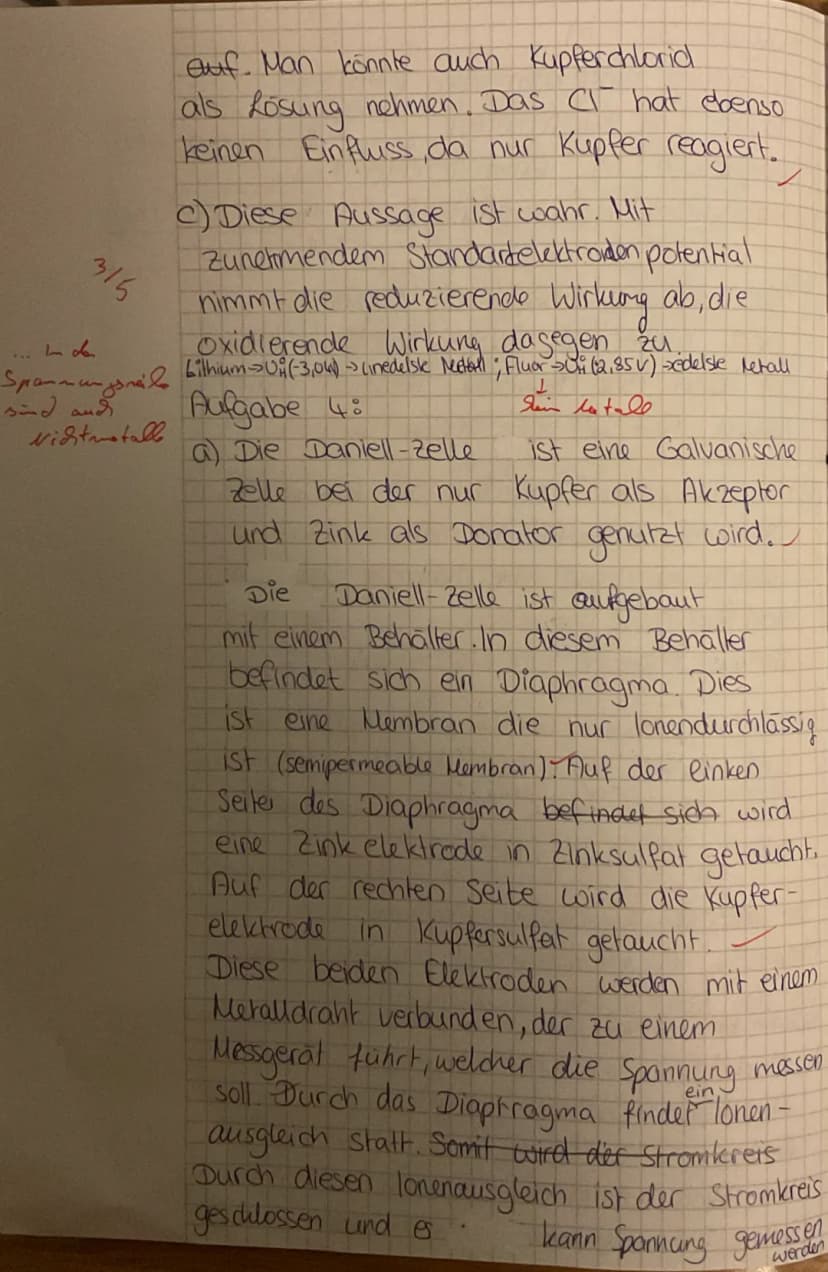 auf. Man könnte auch Kupferchlorid
als Lösung nehmen. Das Cl⁻ hat ebenso
keinen Einfluss, da nur Kupfer reagiert.
c) Diese Aussage ist wahr. Mit
zunehmendem Standartelektrodenpotential
3/5
nimmt die reduzierende Wirkung ab, die
oxidierende Wirkung dagegen zu.
... in der
Spannungsreihe
sind auch
Nichtmetalle
Lithium → (-3,04) → unedelste Metall ; Fluor → (2,85V) → edelste Metall
Aufgabe 4:
↓
kein Metall
a) Die Daniell-Zelle ist eine Galvanische
Zelle bei der nur Kupfer als Akzeptor
und Zink als Donator genutzt wird.
Die Daniell-Zelle ist aufgebaut
mit einem Behälter. In diesem Behälter
befindet sich ein Diaphragma. Dies
ist eine Membran die nur Ionendurchlässig
ist (semipermeable Membran). Auf der linken
Seite des Diaphragma befindet sich wird
eine Zinkelektrode in Zinksulfat getaucht.
Auf der rechten Seite wird die Kupfer-
elektrode in Kupfersulfat getaucht.
Diese beiden Elektroden werden mit einem
Metalldraht verbunden, der zu einem
Messgerät führt, welcher die Spannung messen
soll. Durch das Diaphragma findet ein Ionen-
ausgleich statt. Somit wird der Stromkreis
Durch diesen Ionenausgleich ist der Stromkreis
geschlossen und es kann Spannung gemessen
werden